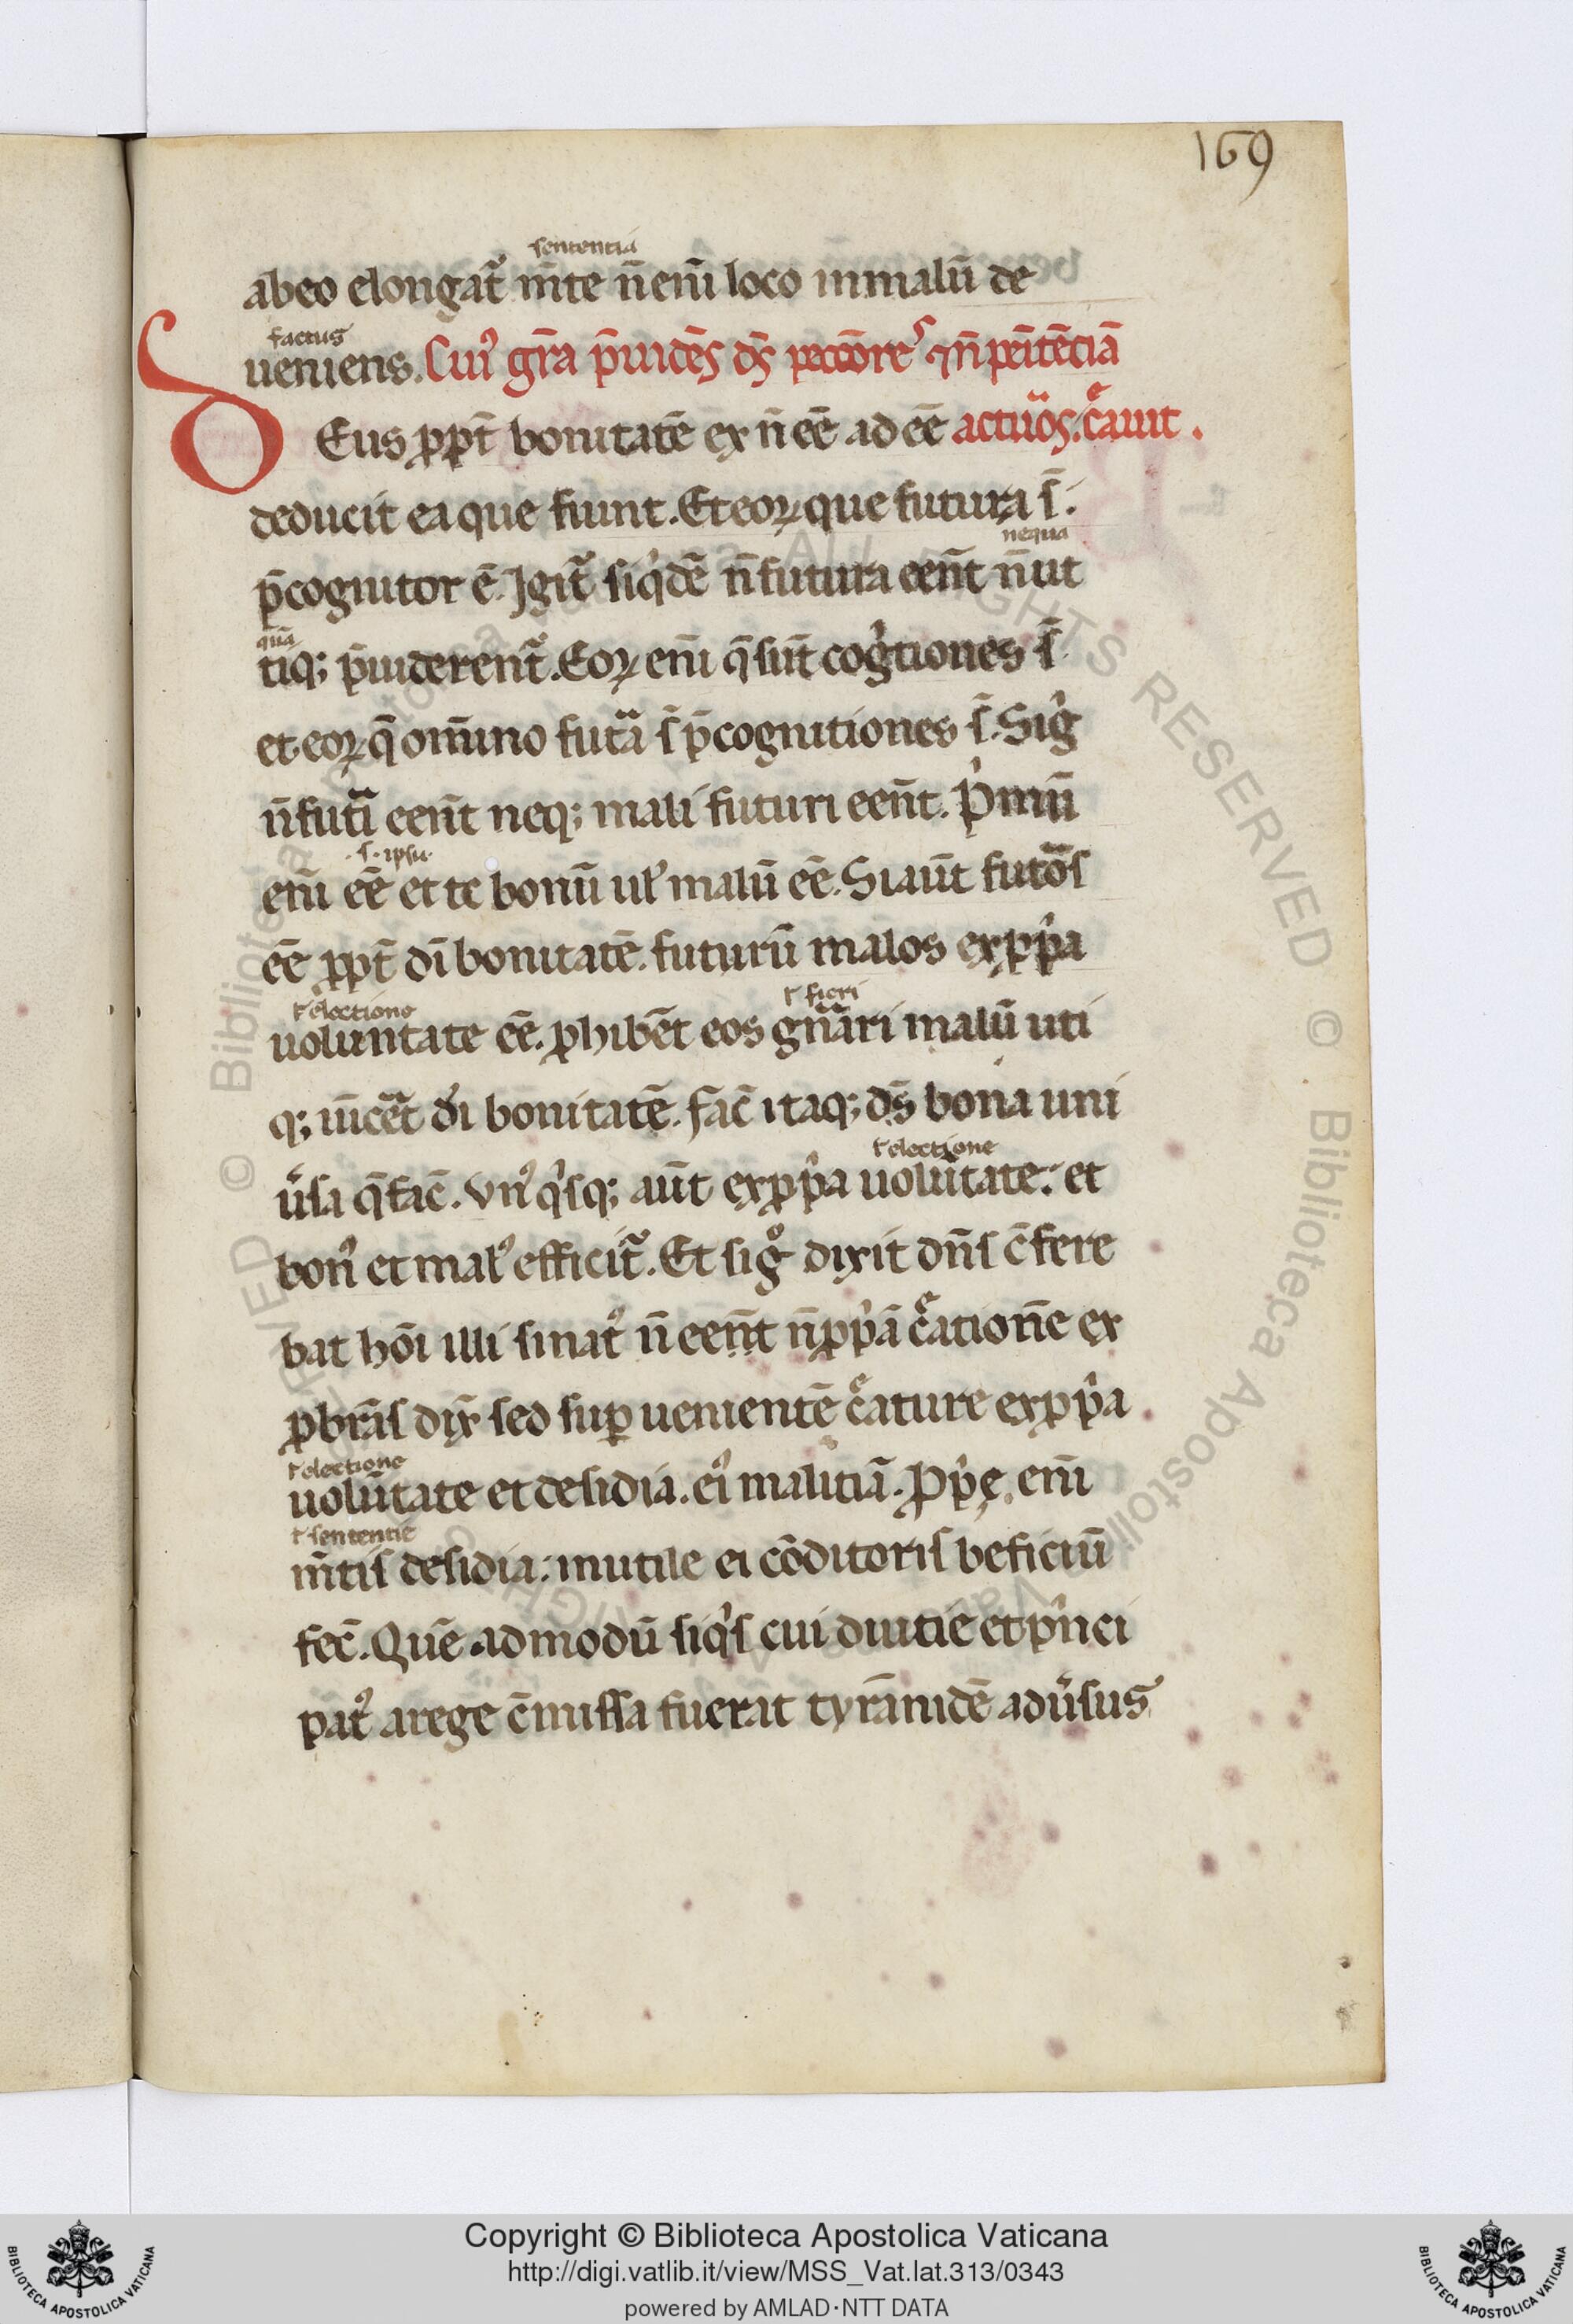 169
sententia
abeo elongat᷑ m̄te n̄ eni᷑ loco in malū de
factus
ueniens. Cuiꝰ gr̄a p̄uidēs ds̄ peccōres ⁊ n̄ penitēciā
Eus ꝓpt̄ bonitatē ex n̄ eē ad eē actuōs. c̄auit.
deducit ea que fiunt. Et eoꝝ que futura s̄.
nequa
p̄cognitor ē. Igit᷑ siq̇dē n̄ futura eēnt n̄ ut
quā
tiq; p̄uiderent᷑. Eoꝝ enī q̄ sūt coġtiones s̄
et eoꝝ q̄ om̄ino futᷓa s̄ p̄cognitiones s̄. Sig̊
n̄ futᷓi eēnt neq; mali futuri eēnt. Ṗmū
.s. ipsū.
enī eē et te bonū uł malū eē. Si aūt futōs
eē ꝓpt̄ dī bonitatē. futurū malos ex ꝓṗa
ł electione
ł fieri
uoluntate eē. ꝓhibēt eos gn̄ari malū uti
q; uīcēt dī bonitatē. facͥ itaq; ds̄ bona uni
ł electione
ūsa q̄ facͥ. Vnꝰ q̇sq; aūt ex ꝓṗa uolūtate. et
bonꝰ et malꝰ efficit᷑. Et sig̊ dixit dn̄s c̄fere
bat hōi illi si natꝰ n̄ eēnt n̄ ꝓṗā c̄ationē ex
ꝓbrās dix̄ sed suꝑuenientē c̄ature ex ꝓṗa
ł electione
uolūtate et desidia. eiꝰ malitiā. Ꝓṗe. enī
ł sententie
m̄tis desidia. inutile ei cōditoris beficiū
fec̄. Quē admodū siq̇s cui diuitie et ṗnci
patꝰ a rege c̄missa fuerat tyrānidē adūsus
Copyright © Biblioteca Apostolica Vaticana
http://digi.vatlib.it/view/MSS_Vat.lat.313/0343
powered by AMLAD·NTT DATA
BIBLIOTECA APOSTOLICA VATICANA
BIBLIOTECA APOSTOLICA VATICANA